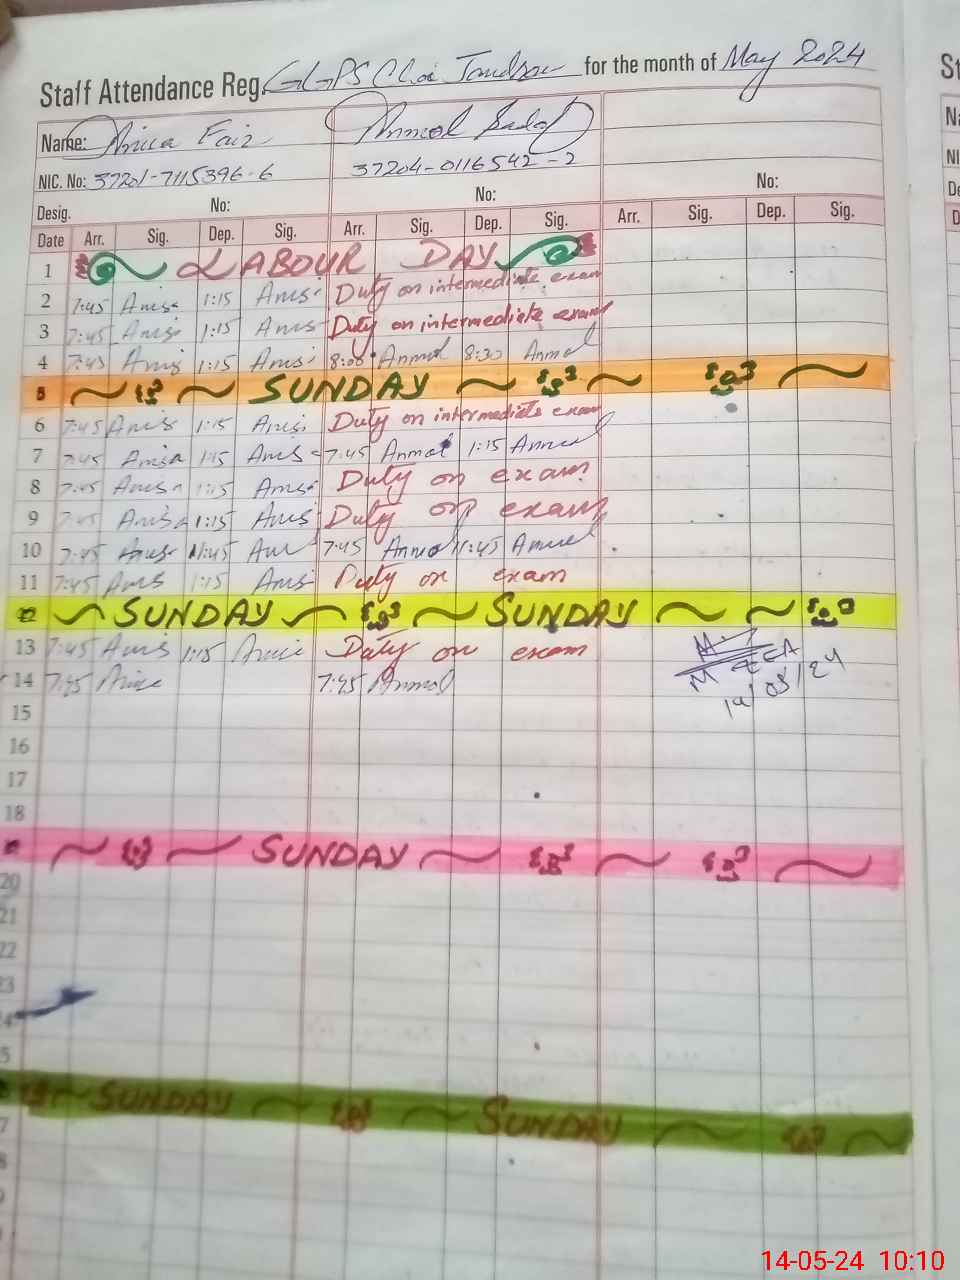 Staff Attendance Reg. GGPS Choi for the month of May 2024
Name: Anisa Faiz Anmol Sadaf
NIC. No: 37201-7115396-6 37204-0116542-2
Desig. No: No: No:
Date Arr. Sig. Dep. Sig. Arr. Sig. Dep. Sig. Arr. Sig. Dep. Sig.
1 LABOUR DAY
2 7:45 Anisa 1:15 Anisa Duty on intermediate exam
3 7:45 Anisa 1:15 Anisa Duty on intermediate exam
4 7:45 Anisa 1:15 Anisa 8:00 Anmol 8:30 Anmol
5 SUNDAY
6 7:45 Anisa 1:15 Anisa Duty on intermediate exam
7 7:45 Anisa 1:15 Anisa 7:45 Anmol 1:15 Anmol
8 7:45 Anisa 1:15 Anisa Duty on exam
9 7:45 Anisa 1:15 Anisa Duty on exam
10 7:45 Anisa 11:45 Anisa 7:45 Anmol 11:45 Anmol
11 7:45 Anisa 1:15 Anisa Duty on exam
12 SUNDAY SUNDAY
13 7:45 Anisa 1:15 Anisa Duty on exam
M EEA
14 7:45 Anisa 7:45 Anmol
14/05/24
15
16
17
18
SUNDAY
20
21
22
23
SUNDAY SUNDAY
14-05-24 10:10